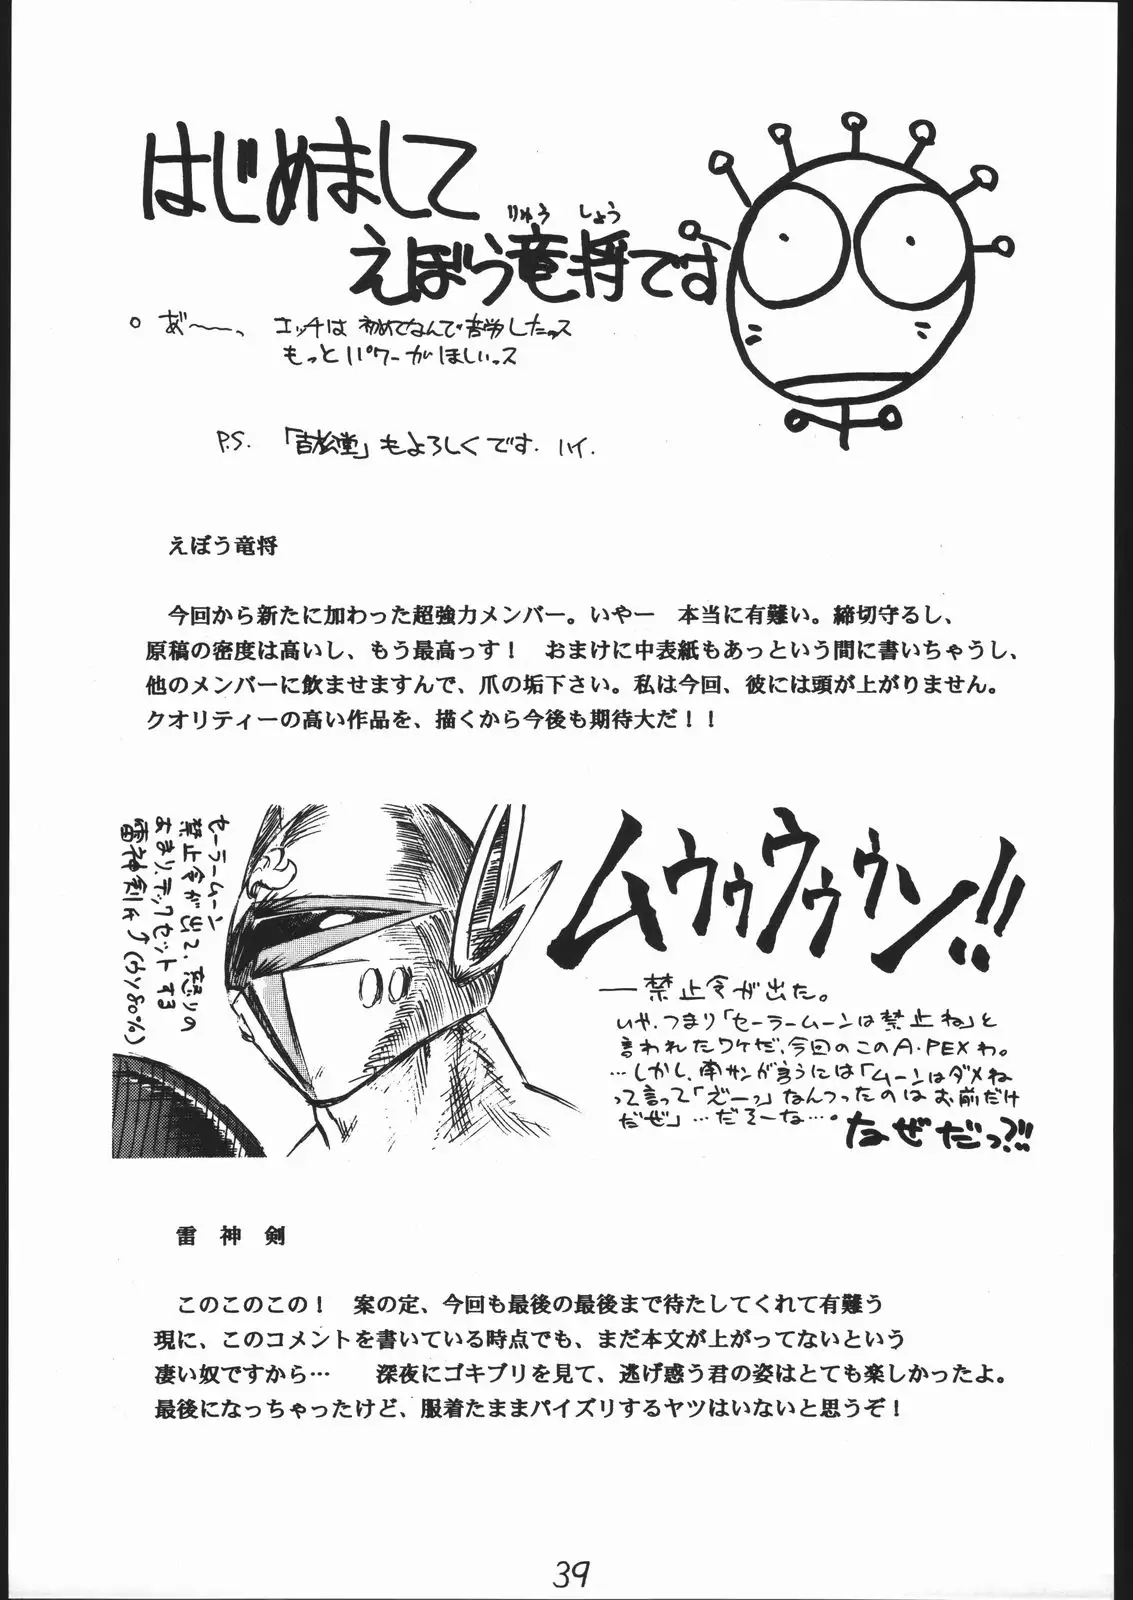 はじめまして
りゅう しょう
えぼう竜将です
あ゛〜〜っ エッチは初めてなんで苦労したっス
もっとパワーがほしいっス
P.S. 「吉松堂」もよろしくです. ハイ.
えぼう竜将
今回から新たに加わった超強力メンバー。いやー 本当に有難い。締切守るし、
原稿の密度は高いし、もう最高っす! おまけに中表紙もあっという間に書いちゃうし、
他のメンバーに飲ませますんで、爪の垢下さい。私は今回、彼には頭が上がりません。
クオリティーの高い作品を、描くから今後も期待大だ!!
セーラームーン
禁止令が出て、怒りの
あまり、テックセットする
雷神剣氏↑(ウソ80%)
ムウゥウゥウン!!
——禁止令が出た。
いや、つまり「セーラームーンは禁止ね」と
言われたワケだ、今回のこのA・PEXわ。
…しかし、南サンが言うには「ムーンはダメね
って言って「ズーッ」なんつったのはお前だけ
だぜ」…だそーな…。なぜだっ?!!
雷 神 剣
このこのこの! 案の定、今回も最後の最後まで待たしてくれて有難う
現に、このコメントを書いている時点でも、まだ本文が上がってないという
凄い奴ですから… 深夜にゴキブリを見て、逃げ惑う君の姿はとても楽しかったよ。
最後になっちゃったけど、服着たままパイズリするヤツはいないと思うぞ!
39